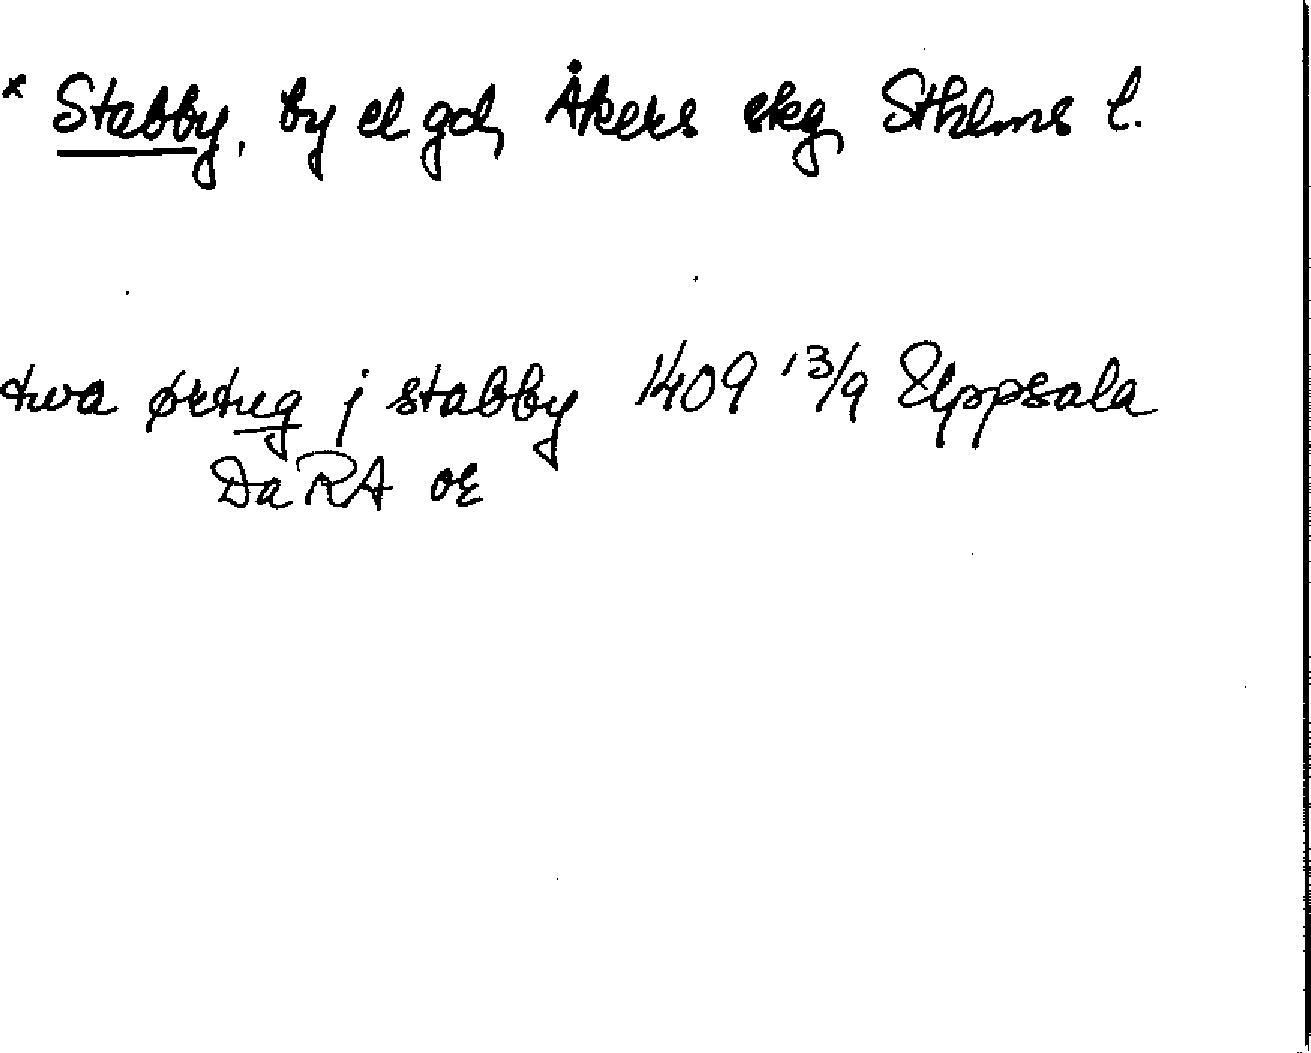 * Stabby, by el gd, Åkers skg, Sthlms l.
twa ørtug j stabby 1409 13/9 Uppsala
DaRA or